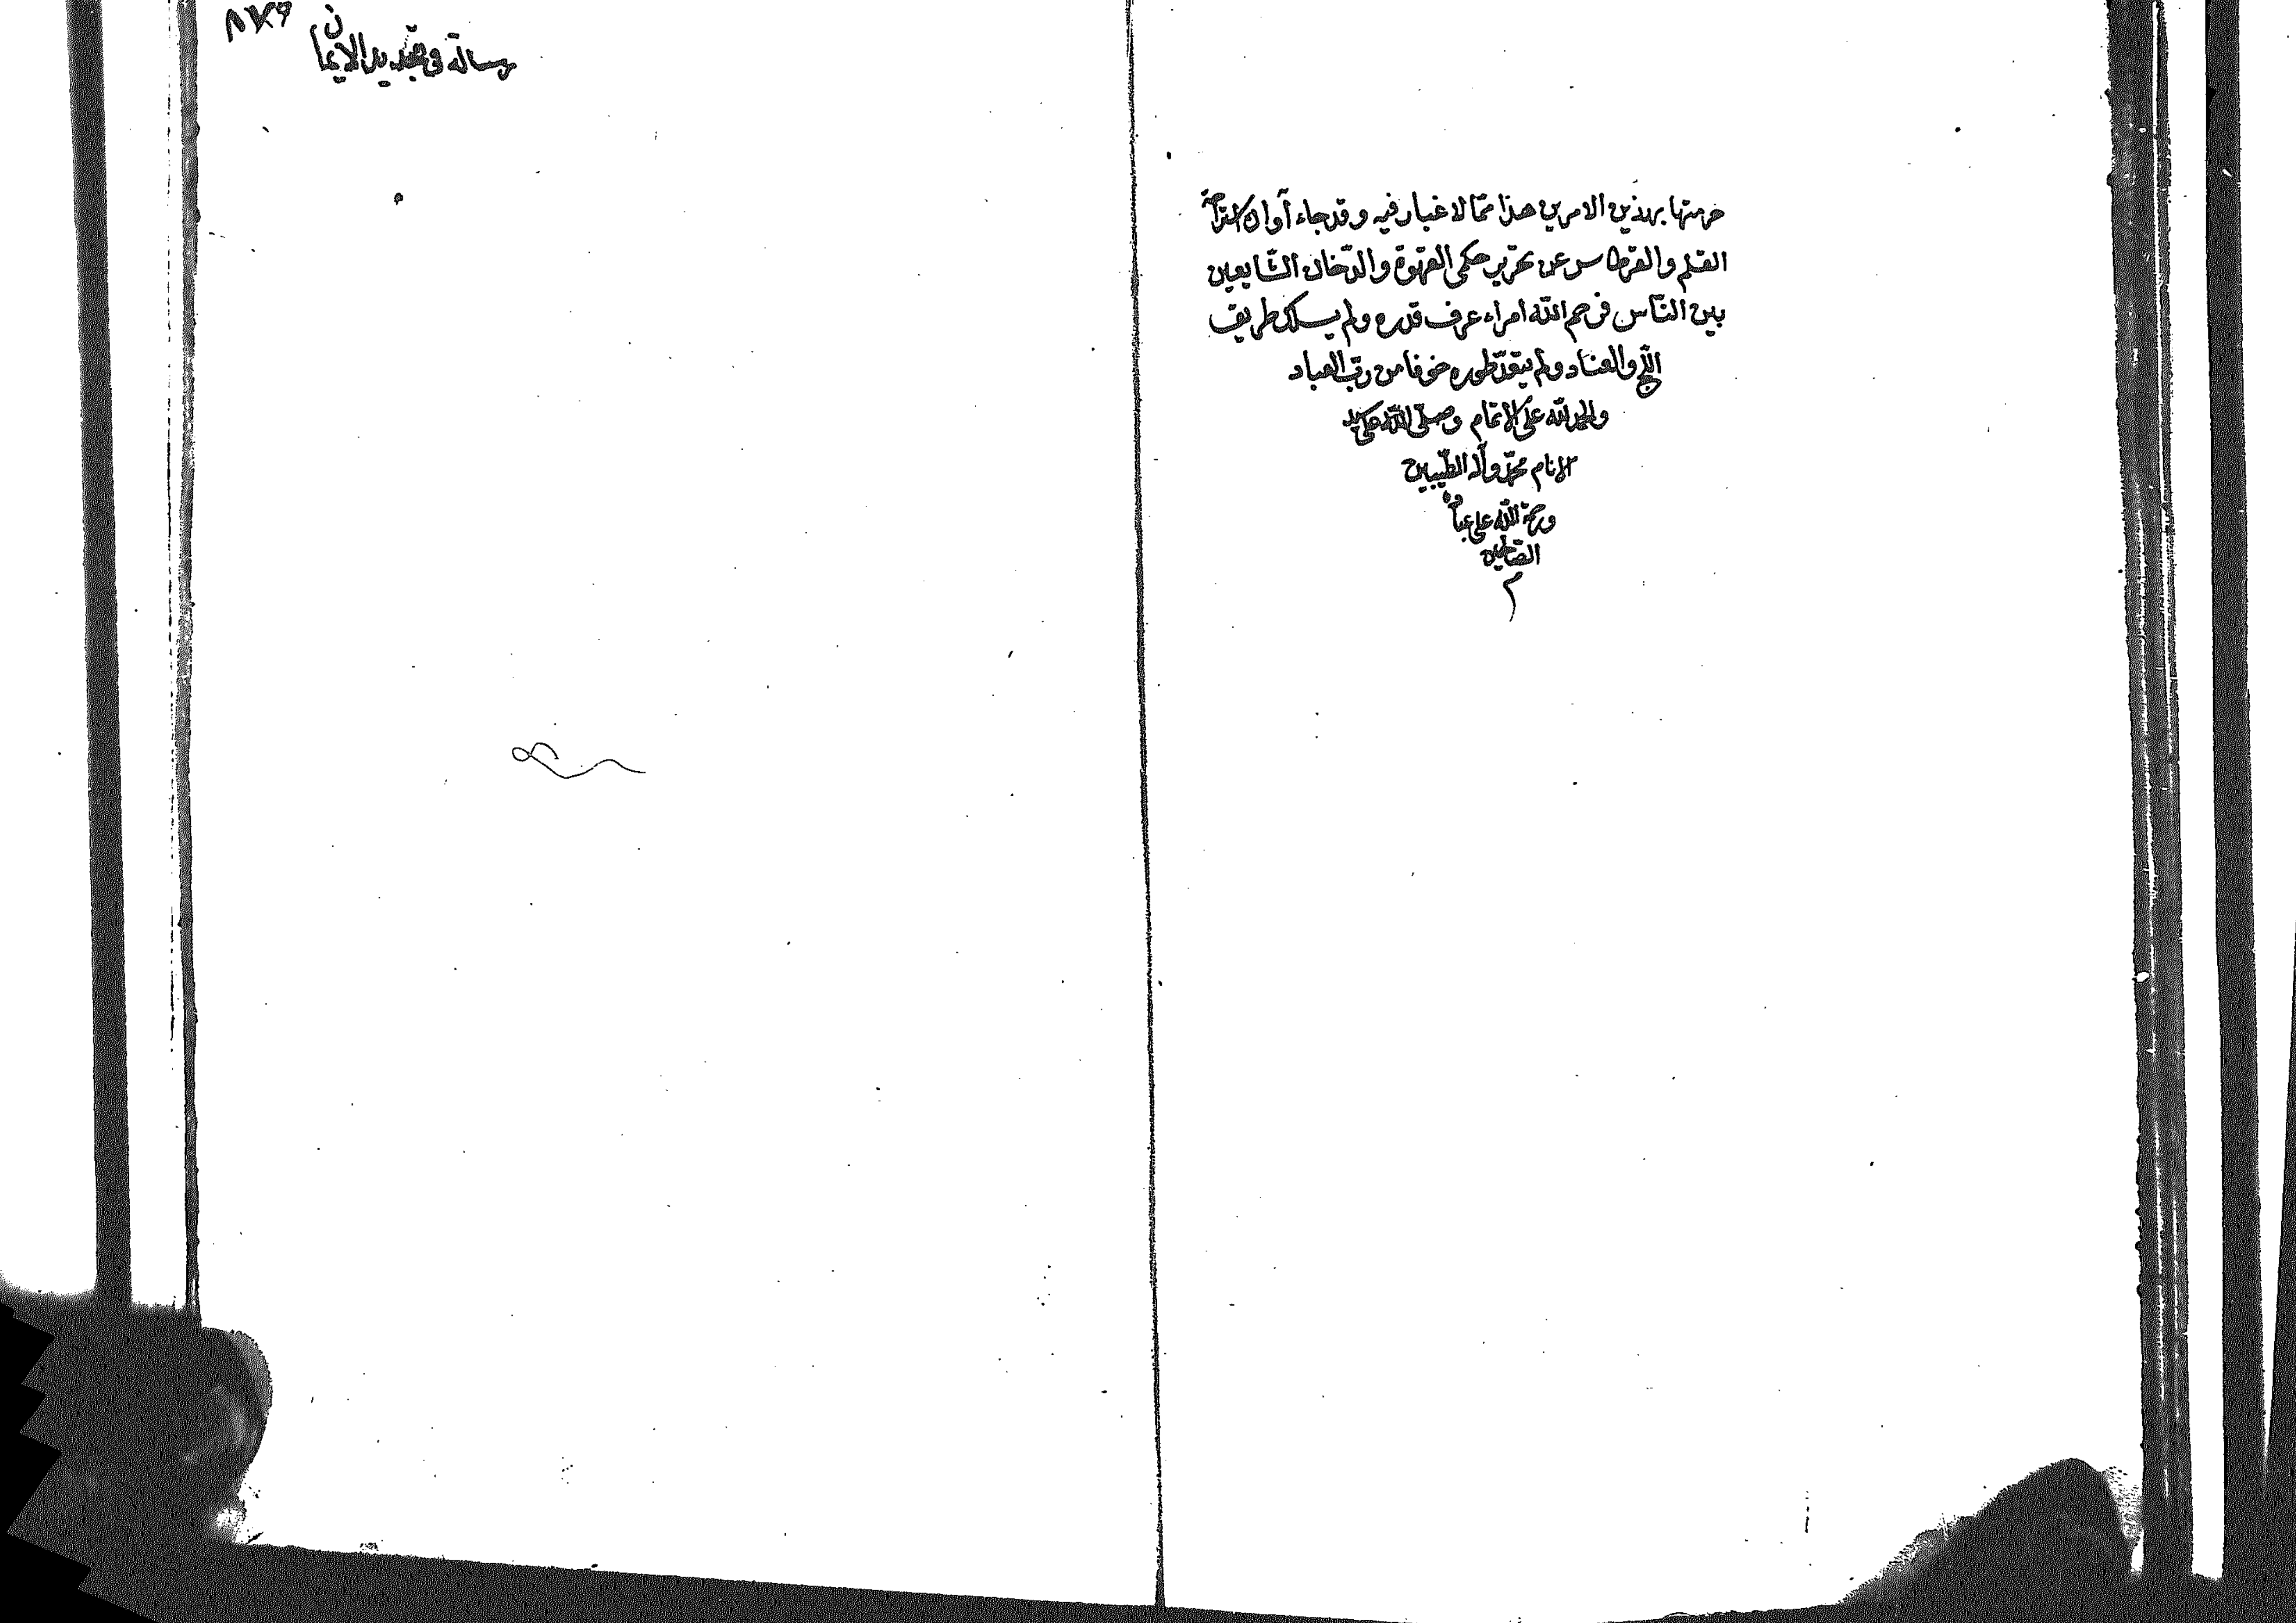 حرمتها بهذين الامرين هذا ممّا لا غبار فيه وقد جاء آوان استراحة
القلم والقرطاس عن تحرير حكمى القهوة والدّخان الشّايعين
بين النّاس فرحم اللّه امراء عرف قدره ولم يسلك طريق
اللّج والعناد ولم يتعدّ طوره خوفا من ربّ العباد
والحمد للّه على الاتمام وصلّى اللّه على سيد
الانام محمّد وآله الطّيبين
ورحمة اللّه على عباده
الصّالحين
م
رسالة فى تجديد الايمان